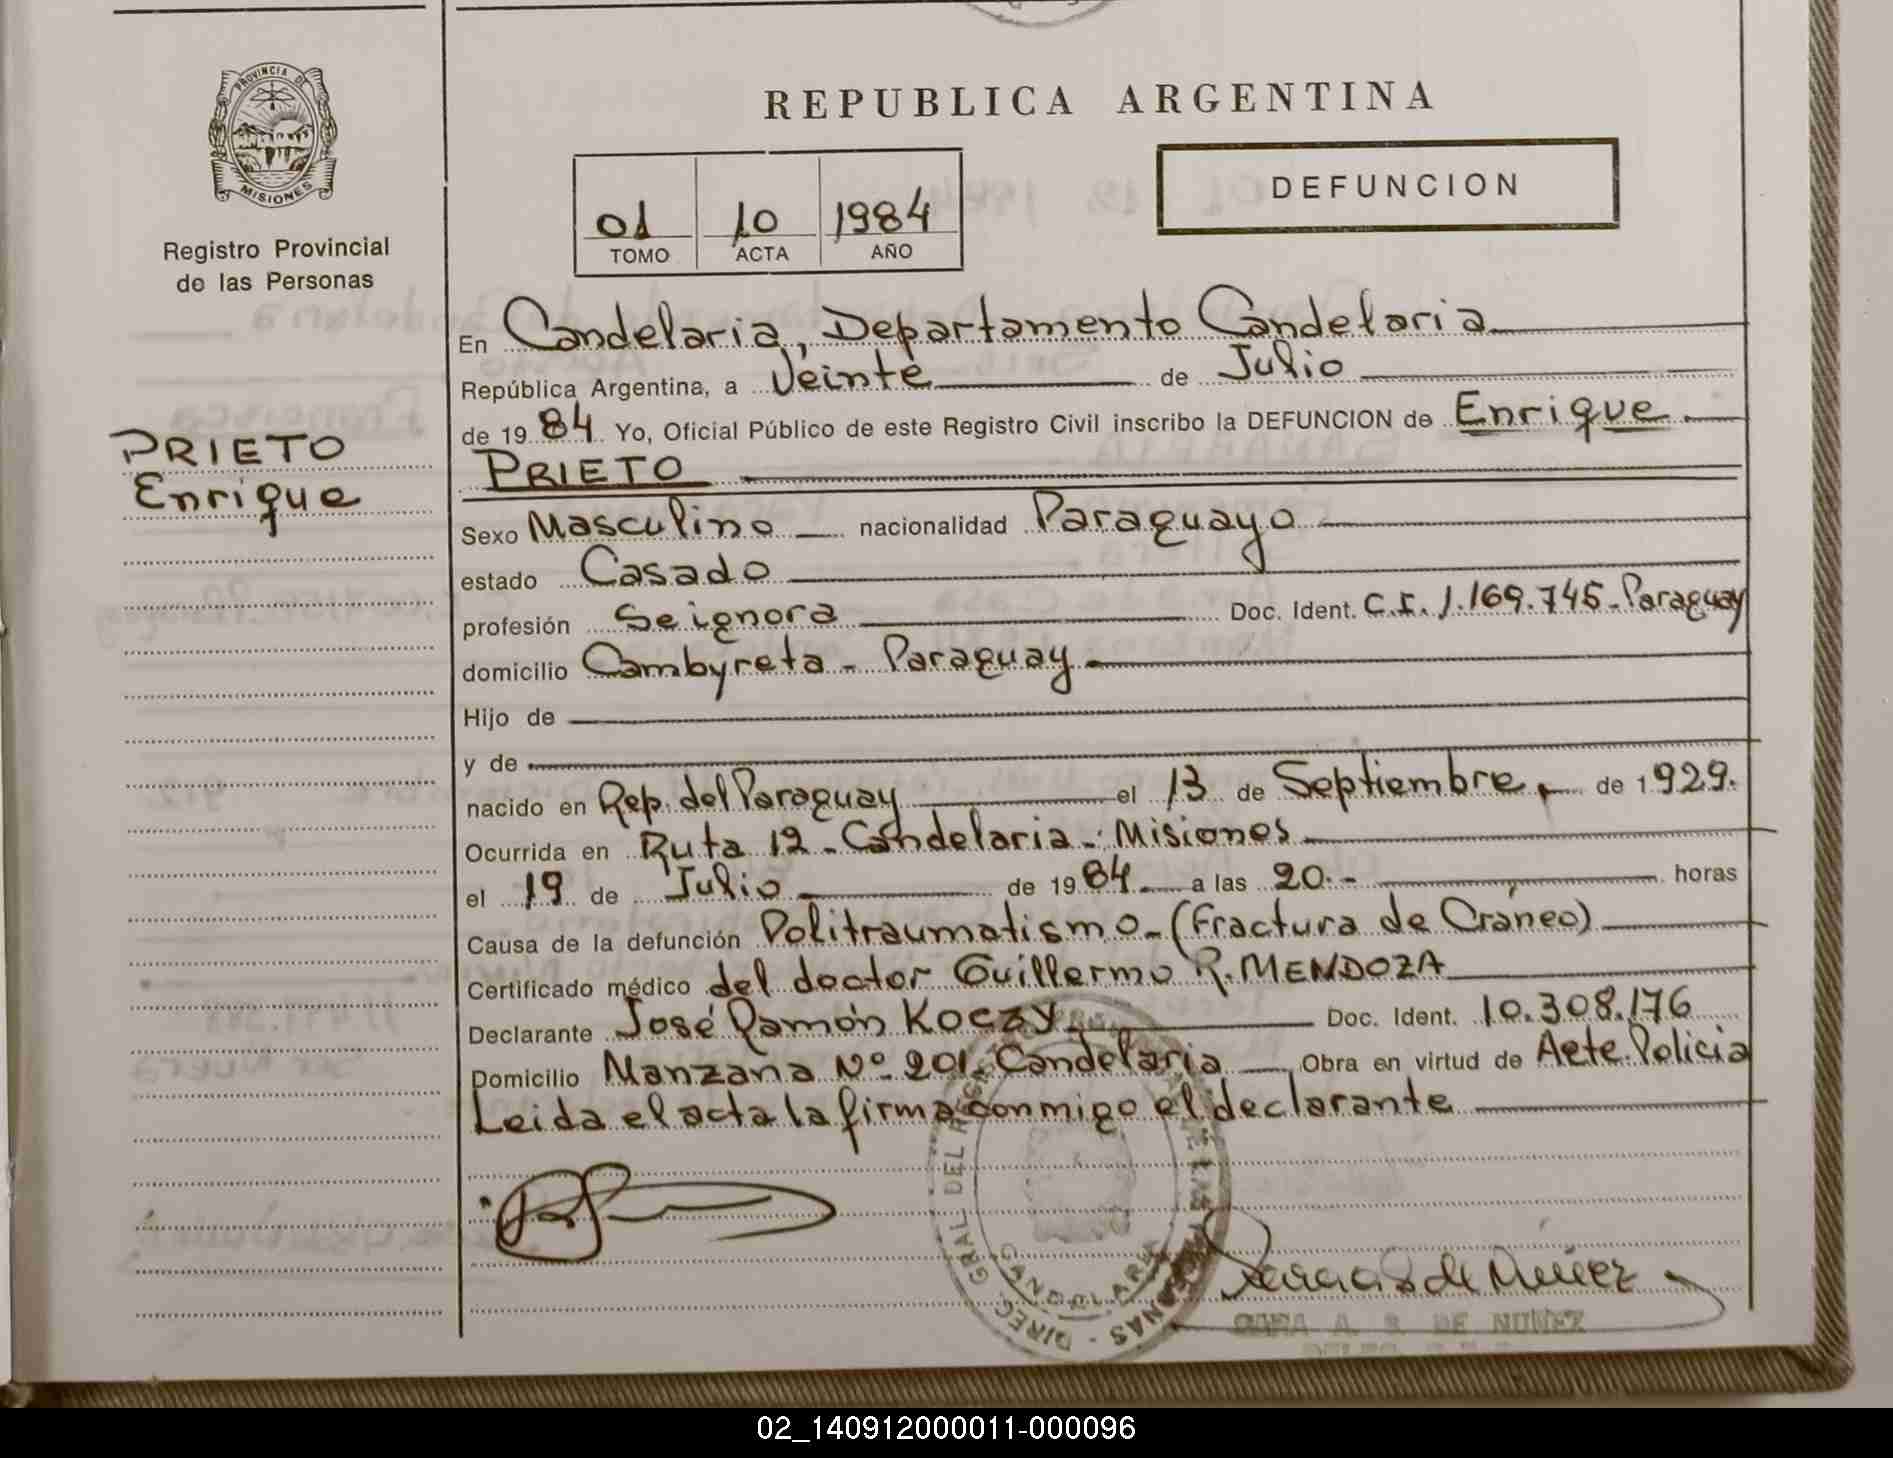 PROVINCIA DE
MISIONES
Registro Provincial
de las Personas
PRIETO
Enrique
REPUBLICA ARGENTINA
01 10 1984
TOMO ACTA AÑO
DEFUNCION
En Candelaria, Departamento Candelaria
República Argentina, a Veinte de Julio
de 1984 Yo, Oficial Público de este Registro Civil inscribo la DEFUNCION de Enrique
PRIETO
Sexo Masculino nacionalidad Paraguayo
estado Casado
profesión Se ignora Doc. Ident. C.I. 1.169.745-Paraguay
domicilio Cambyreta - Paraguay
Hijo de
y de
nacido en Rep. del Paraguay el 13 de Septiembre, de 1929.
Ocurrida en Ruta 12 - Candelaria - Misiones
el 19 de Julio de 1984 a las 20.- horas
Causa de la defunción Politraumatismo - (Fractura de Cráneo)
Certificado médico del doctor Guillermo R. MENDOZA
Declarante José Ramón Koczy Doc. Ident. 10.308.176
Domicilio Manzana Nº 201. Candelaria Obra en virtud de Acte. Policia
Leida el acta la firma conmigo el declarante
DIREC. GRAL DEL PERSONAS
CANDELARIA
S de Núñez
SARA A. S. DE NUÑEZ
02_140912000011-000096